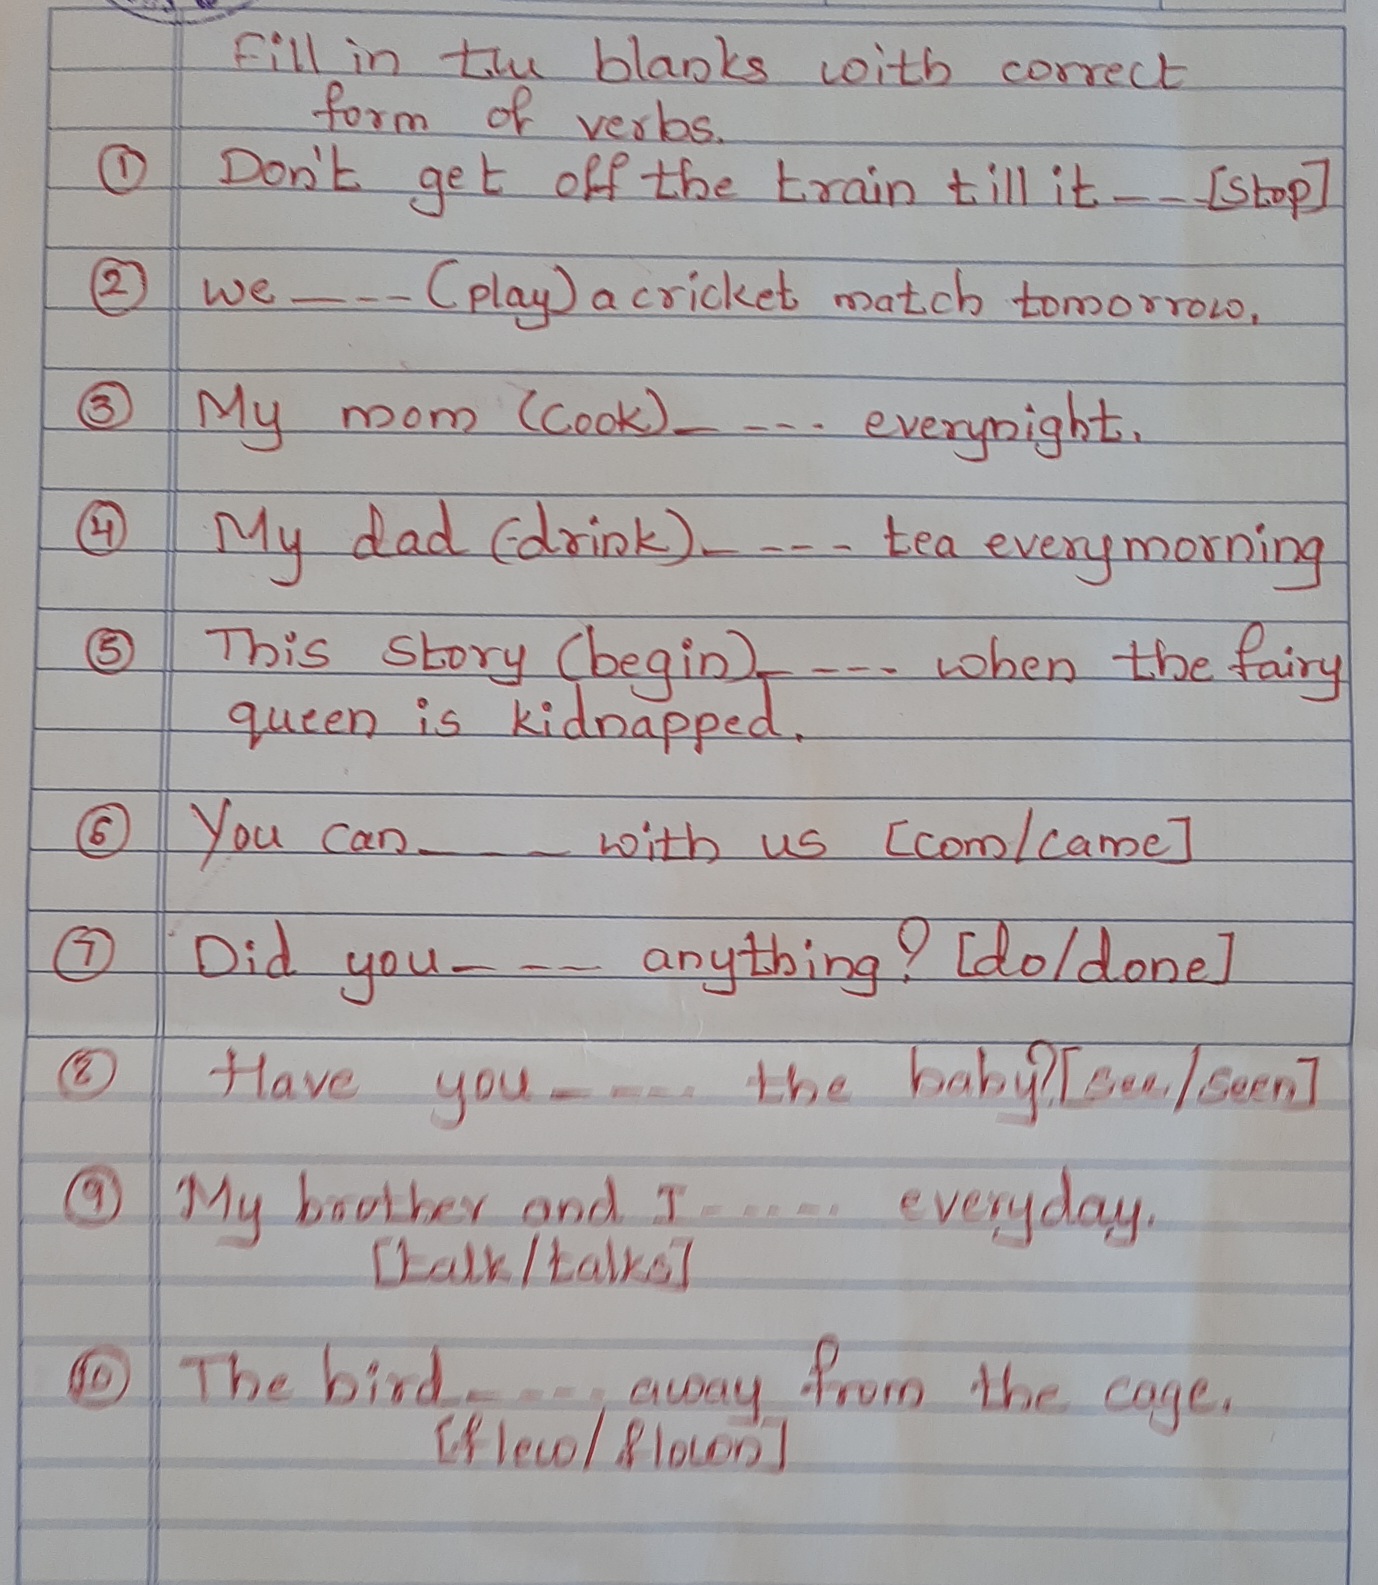 Fill in the blanks with correct
form of verbs.
① Don't get off the train till it --- [stop]
② we ---- (play) a cricket match tomorrow.
③ My mom (cook) ----- everynight.
④ My dad (drink) ----- tea every morning
⑤ This story (begin) ----- when the fairy
queen is kidnapped.
⑥ You can ---- with us [com/came]
⑦ Did you ---- anything? [do/done]
⑧ Have you ----- the baby? [see/seen]
⑨ My brother and I ----- everyday.
[talk/talks]
⑩ The bird ----- away from the cage.
[flew/flown]